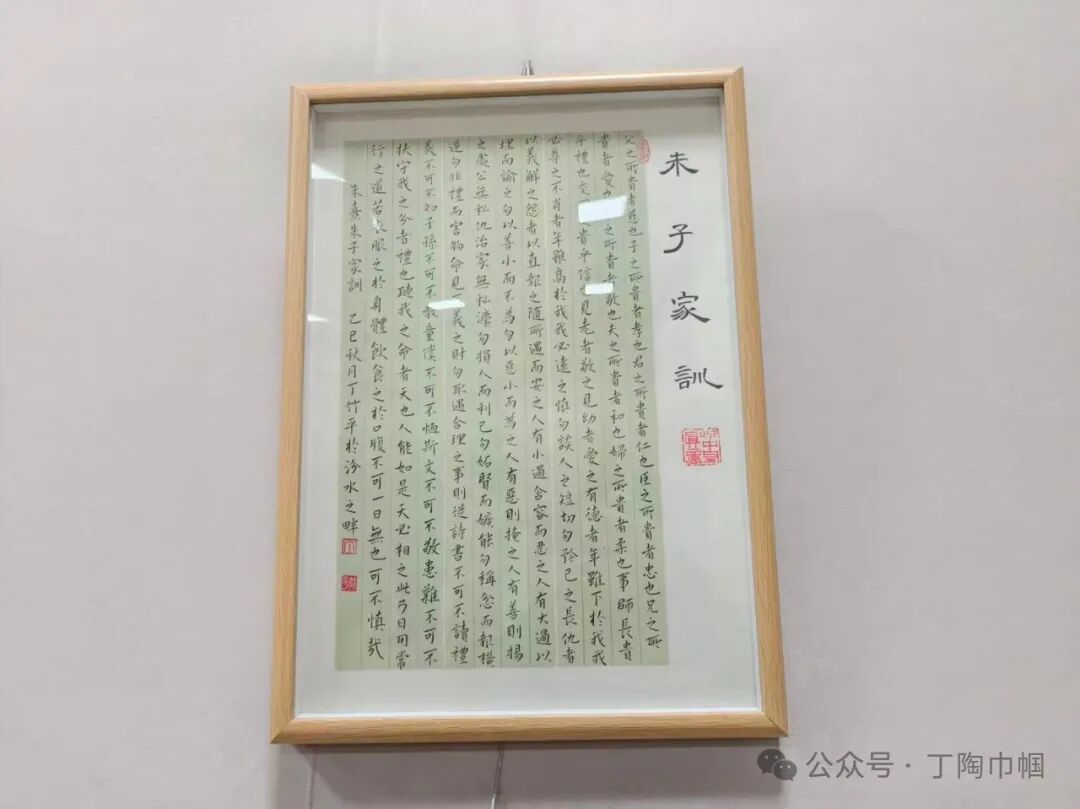 朱子家訓
父之所貴者慈也子之所貴者孝也君之所貴者仁也臣之所貴者忠也兄之所
貴者愛也之所貴者敬也夫之所貴者和也婦之所貴者柔也事師長貴
乎禮也交貴乎信也見老者敬之見幼者愛之有德者年雖下於我我
必尊之不肖者年雖高於我我必遠之慎勿談人之短切勿矜己之長仇者
以義解之怨者以直報之隨所遇而安之人有小過含容而忍之人有大過以
理而諭之勿以善小而不為勿以惡小而為之人有惡則掩之人有善則揚
之處公無私仇治家無私灋勿損人而利己勿妬賢而嫉能勿稱忿而報橫
逆勿非禮而害物命見義之財勿取遇合理之事則從詩書不可不讀禮
義不可不知子孫不可不教童僕不可不恤斯文不可不敬患難不可不
扶守我之分者禮也聽我之命者天也人能如是天必相之此乃日用常
行之道若衣服之於身體飲食之於口腹不可一日無也可不慎哉
朱熹朱子家訓 乙巳秋月丁竹平於汾水之畔
公众号·丁陶巾帼